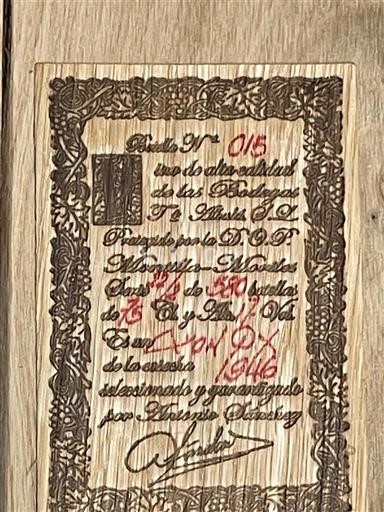 Botella Nº 015
Vino de alta calidad
de las Bodegas
Tº Albalá, S.L.
Protegido por la D.O.P.
Montilla-Moriles
Serie de 580 botellas
de 75 Cl. y Alc. 17 Vol.
Es un DON PX
de la cosecha 1946
seleccionado y garantizado
por Antonio Sánchez